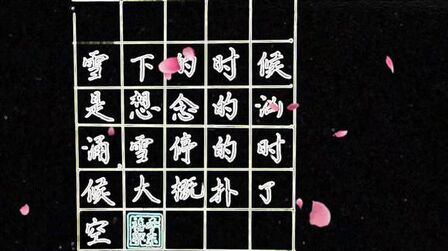 雪下的时候
是想念的汹
涌雪停的时
候大概扑了
空